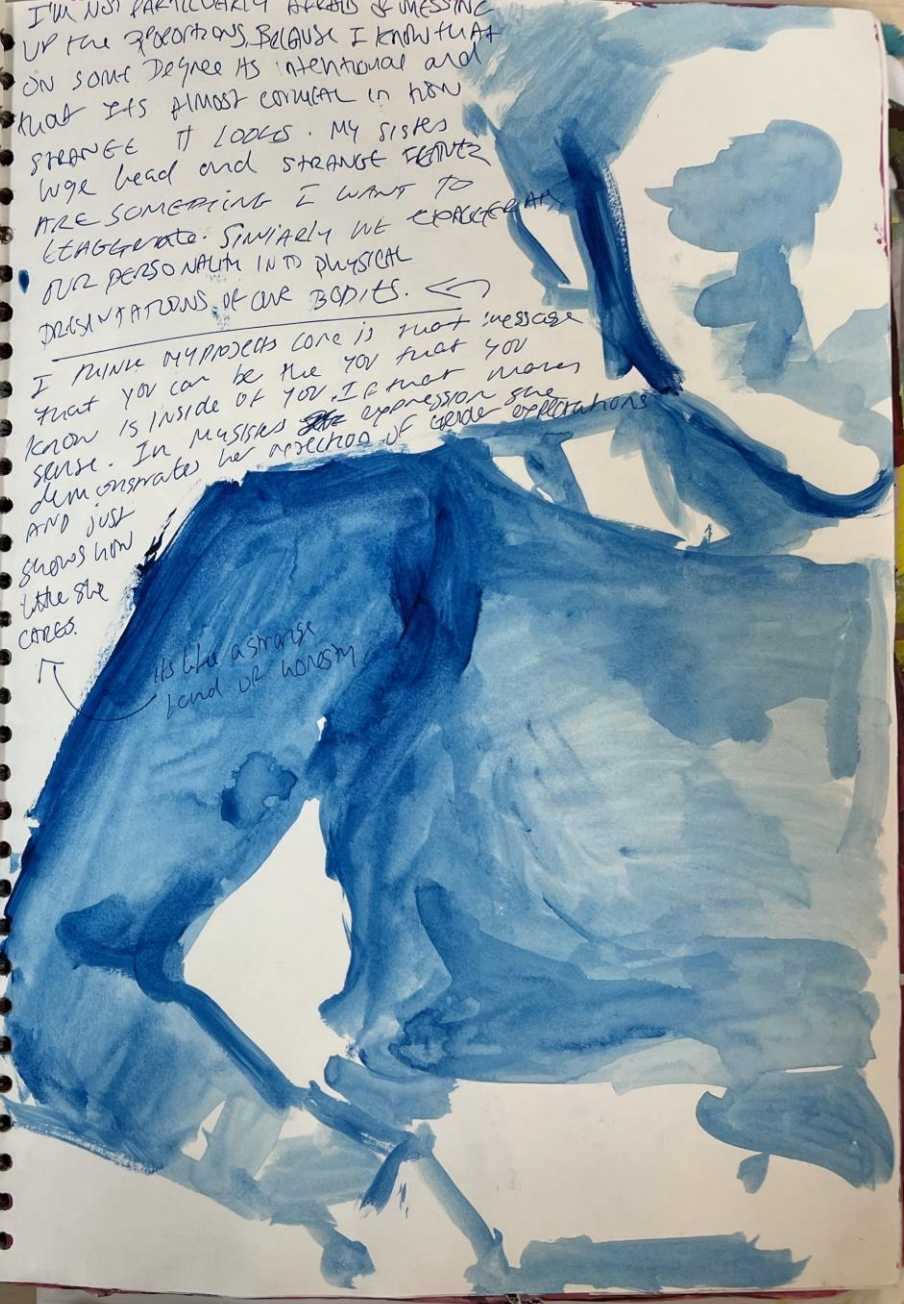 I'M NOT PARTICULARLY AFRAID OF MESSING
UP the PROPORTIONS, BECAUSE I KNOW that
ON some Degree its intentional and
that ITS ALMOST COMICAL in how
STRANGE IT LOOKS. MY SISTERS
huge head and STRANGE
ARE SOMETHING I WANT TO
EXAGGERATE. SIMILARLY WE EXAGGERATE
OUR PERSONALITY INTO PHYSICAL
PRESENTATIONS OF OUR BODIES.
I think MY PROJECTS CORE is that message
that you can be the YOU that YOU
KNOW IS INSIDE OF YOU. If that makes
sense. In My SISTERS expression she
demonstrates her rejection OF Gender expectations
AND just
shows how
little she
CARES.
its like a strange
kind of honesty